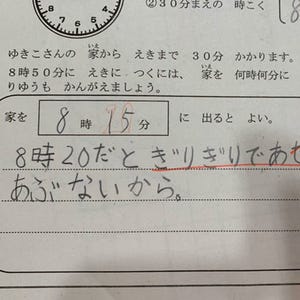 ②30分まえの 時こく
ゆきこさんの 家から えきまで 30分 かかります。
8時50分に えきに つくには、 家を 何時何分に
りゆうも かんがえましょう。
家を 8 時 15 分 に 出ると よい。
8時20だと ぎりぎりであせ
あぶないから。